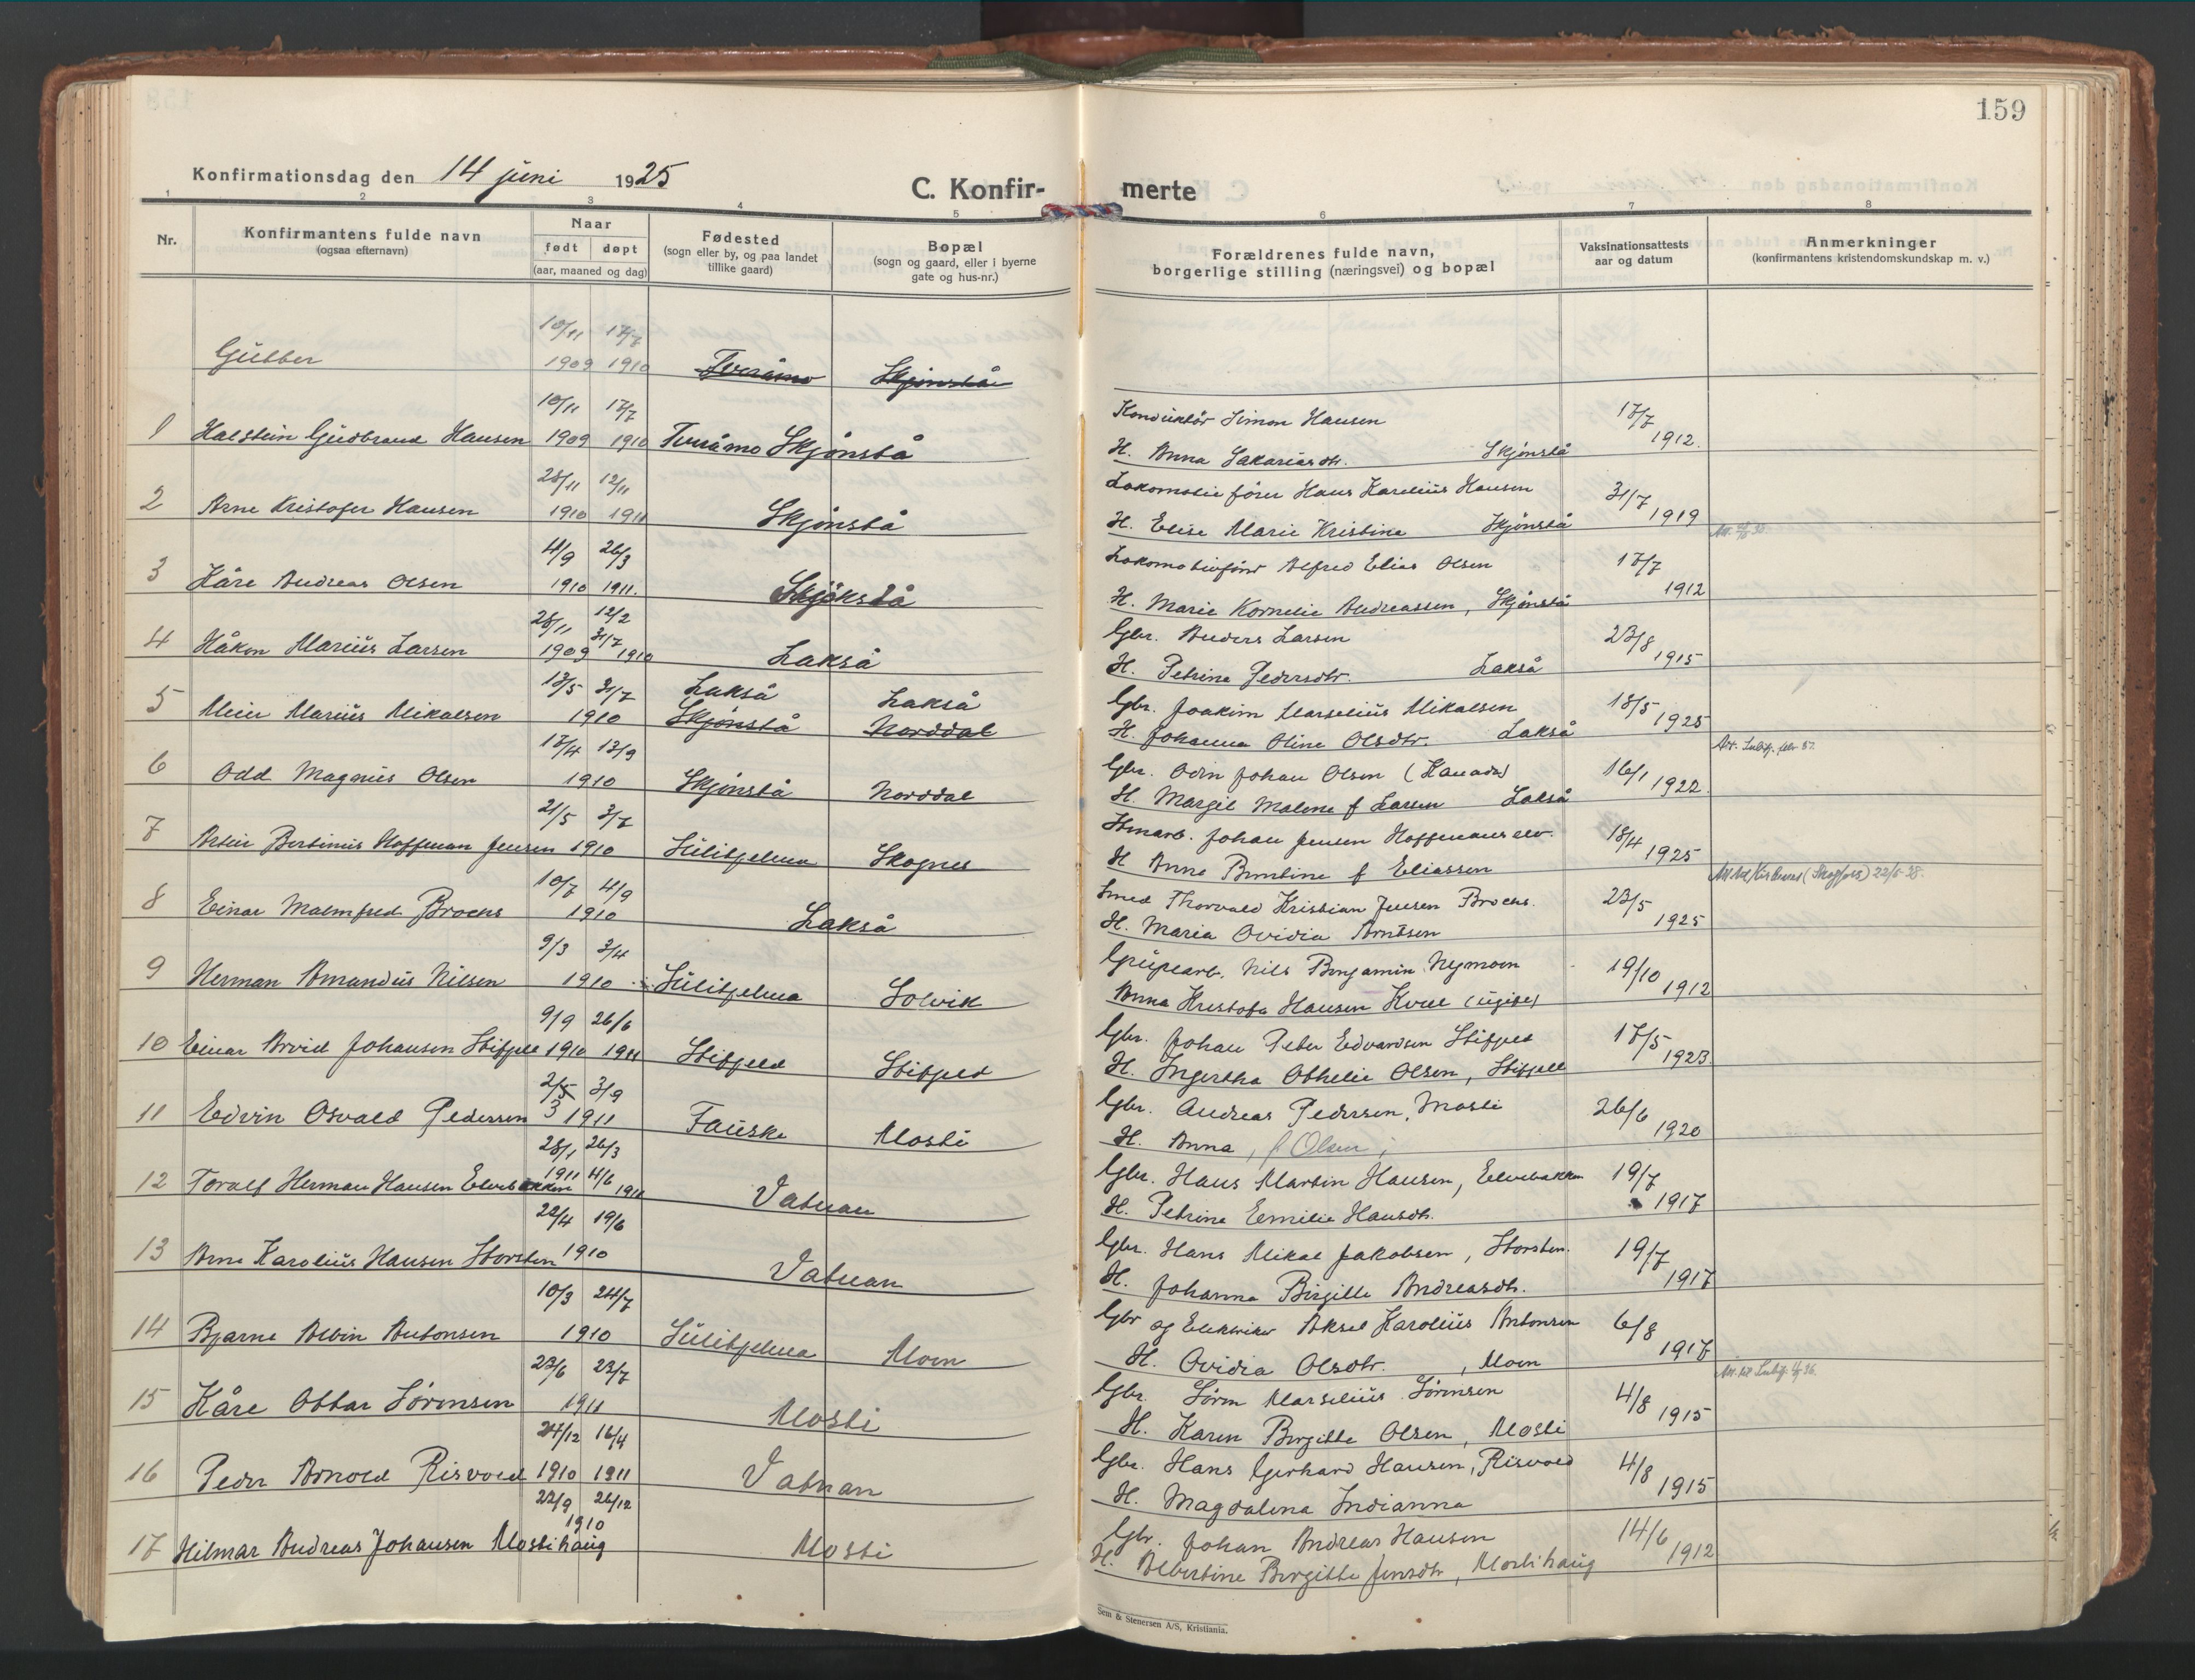 159
Konfirmationsdag den 14 juni 1925
C. Konfir- merte
1 2 3 4 5 6 7 8
Nr.
Konfirmantens fulde navn
(ogsaa efternavn)
Naar
født døpt
(aar, maaned og dag)
Fødested
(sogn eller by, og paa landet
tillike gaard)
Bopæl
(sogn og gaard, eller i byerne
gate og hus-nr.)
Forældrenes fulde navn,
borgerlige stilling (næringsvei) og bopæl
Vaksinationsattests
aar og datum
Anmerkninger
(konfirmantens kristendomskundskap m. v.)
10/11 17/7
Gutter 1909 1910 Tveråmo Skjønstå
10/11 17/7 Konduktør Simon Hansen 17/7
1 Halstein Gudbrand Hansen 1909 1910 Tveråmo Skjønstå H. Anna Sakariasdtr. Skjønstå 1912.
28/11 12/11 Lokomotivfører Hans Karelius Hansen 31/7
2 Arne Kristofer Hansen 1910 1911 Skjønstå H. Elise Marie Kristine Skjønstå 1919
4/9 26/3 Lokomotivfører Alfred Elias Olsen 17/7
3 Kåre Andreas Olsen 1910 1911. Skjønstå H. Marie Kornelie Andreassen, Skjønstå 1912
28/11 12/2 31/7 Gbr. Anders Larsen 23/8
4 Håkon Marius Larsen 1909 1910 Lakså H. Petrine Pedersdtr. Lakså 1915
13/5 31/7 Lakså Lakså Gbr. Joakim Marselius Mikalsen 18/5
5 Meier Marius Mikalsen 1910 Skjønstå Norddal H. Johanna Oline Olsdtr. Lakså 1925
17/4 13/9 Gbr. Odin Johan Olsen (Kanada) 16/1
6 Odd Magnus Olsen 1910 Skjønstå Norddal H. Margit Malene f Larsen Lakså 1922.
21/5 3/7 Johan Jensen 18/4
7 Bertinius Hoffman Jensen 1910 Sulitjelma Skognes H Anna f Eliassen 1925
10/7 4/9 Smed Thorvald Kristian Jensen Brochs. 23/5
8 Einar Malmfred Brochs 1910 Lakså H. Maria Ovidia Arntsen 1925
9/3 3/4 Grubearb. Nils Benjamin Nymoen 19/10
9 Herman Amandus Nilsen 1910 Sulitjelma Solvik Anna Kristofa Hansen (ugift) 1912
9/9 26/6 Gbr. Johan Peter Edvardsen Stifjeld 17/5
10 Einar Arvid Johansen Stifjell 1910 1911 Stifjeld Stifjeld H. Othelie Olsen, Stifjell 1923.
2/5 3 3/9 Gbr. Andreas Pedersen, Mosti 26/6
11 Edvin Osvald Pedersen 1911 Fauske Mosti H. Anna, f Olsen, 1920
28/1 26/3 Gbr. Hans Martin Hansen, Elvebakken 19/7
12 Toralf Herman Hansen Elvebakken 1911 11/6 1911 Vatnan H. Petrine Emilie Hansdtr. 1917
22/4 19/6 Gbr. Hans Mikal Jakobsen, Storsten. 19/7
13 Arne Karolius Hansen Storsten 1910 Vatnan H. Johanna Birgitte Andreasdtr. 1917
10/3 24/7 Gbr og Elektriker Aksel Karolius Antonsen 6/8
14 Bjarne Albin Antonsen 1910 Sulitjelma Moen H. Ovidia Olsdtr. , Moen 1917
23/6 23/7 Gbr. Søren Marselius Sørensen 4/8
15 Kåre Ottar Sørensen 1911 Mosti H. Karen Bergitte Olsen, Mosti 1915
24/12 16/4 Gbr. Hans Gerhard Hansen, Risvold 4/8
16 Peder Arnold Risvold 1910 1911 Vatnan H. Magdalena Indianna 1915
22/9 26/12 Gbr. Johan Andreas Hansen 14/6
17 Hilmar Andreas Johansen Mostihaug 1910 Mosti H. Albertine Bergitte Jensdtr, Mostihaug 1912
Sem & Stenersen A/S, Kristiania.